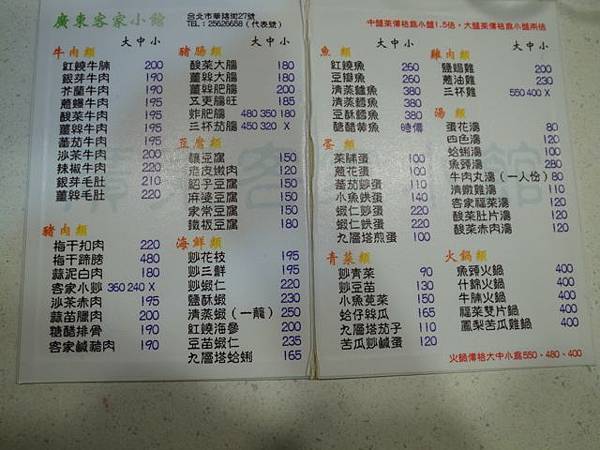 廣東客家小館
台北市華陰街27號
TEL：25626658（代表號）
大 中 小
牛肉類
紅燒牛腩 200
銀芽牛肉 190
芥蘭牛肉 190
蔥爆牛肉 195
酸菜牛肉 190
薑絲牛肉 190
蕃茄牛肉 190
沙茶牛肉 200
辣椒牛肉 220
銀芽毛肚 210
薑絲毛肚 220
豬肉類
梅干扣肉 220
梅干蹄膀 480
蒜泥白肉 180
客家小炒 360 240 X
沙茶赤肉 195
蒜苗臘肉 200
糖醋排骨 190
客家鹹豬肉 190
大 中 小
豬腸類
酸菜大腸 180
薑絲大腸 180
薑絲肥腸 200
五更腸旺 185
炸肥腸 480 350 180
三杯茄腸 450 320 X
豆腐類
釀豆腐 150
皮肉 120
紹子豆腐 150
麻婆豆腐 150
家常豆腐 150
鐵板豆腐 180
海鮮類
炒花枝 195
炒三鮮 195
炒蝦仁 220
鹽酥蝦 230
清蒸蝦（一籠） 250
紅燒海參 200
豆苗蝦仁 235
九層塔蛤蜊 165
中盤菜價格為小盤1.5倍，大盤菜價格為小盤兩倍
大 中 小
魚類
紅燒魚 260
豆瓣魚 260
清蒸鱸魚 380
清蒸鱈魚 380
豆酥鱈魚 380
糖醋黃魚 時價
蛋類
菜脯蛋 100
蔥花蛋 100
蕃茄炒蛋 110
小魚烘蛋 140
蝦仁炒蛋 200
蝦仁烘蛋 220
九層塔煎蛋 100
青菜類
炒青菜 90
炒豆苗 130
小魚莧菜 150
蛤仔絲瓜 165
九層塔茄子 110
苦瓜炒鹹蛋 120
大 中 小
雞肉類
鹽焗雞 200
蔥油雞 230
三杯雞 550 400 X
湯類
蛋花湯 80
四色湯 120
蛤蜊湯 100
魚頭湯 280
牛肉丸湯（一人份） 80
清燉雞湯 150
福菜蝦湯 150
酸菜肚片湯 150
酸菜赤肉湯 150
火鍋類
魚頭火鍋 400
什錦火鍋 400
牛腩火鍋 400
福菜雙片鍋 400
鳳梨苦瓜雞鍋 400
火鍋價格大中小為550、480、400